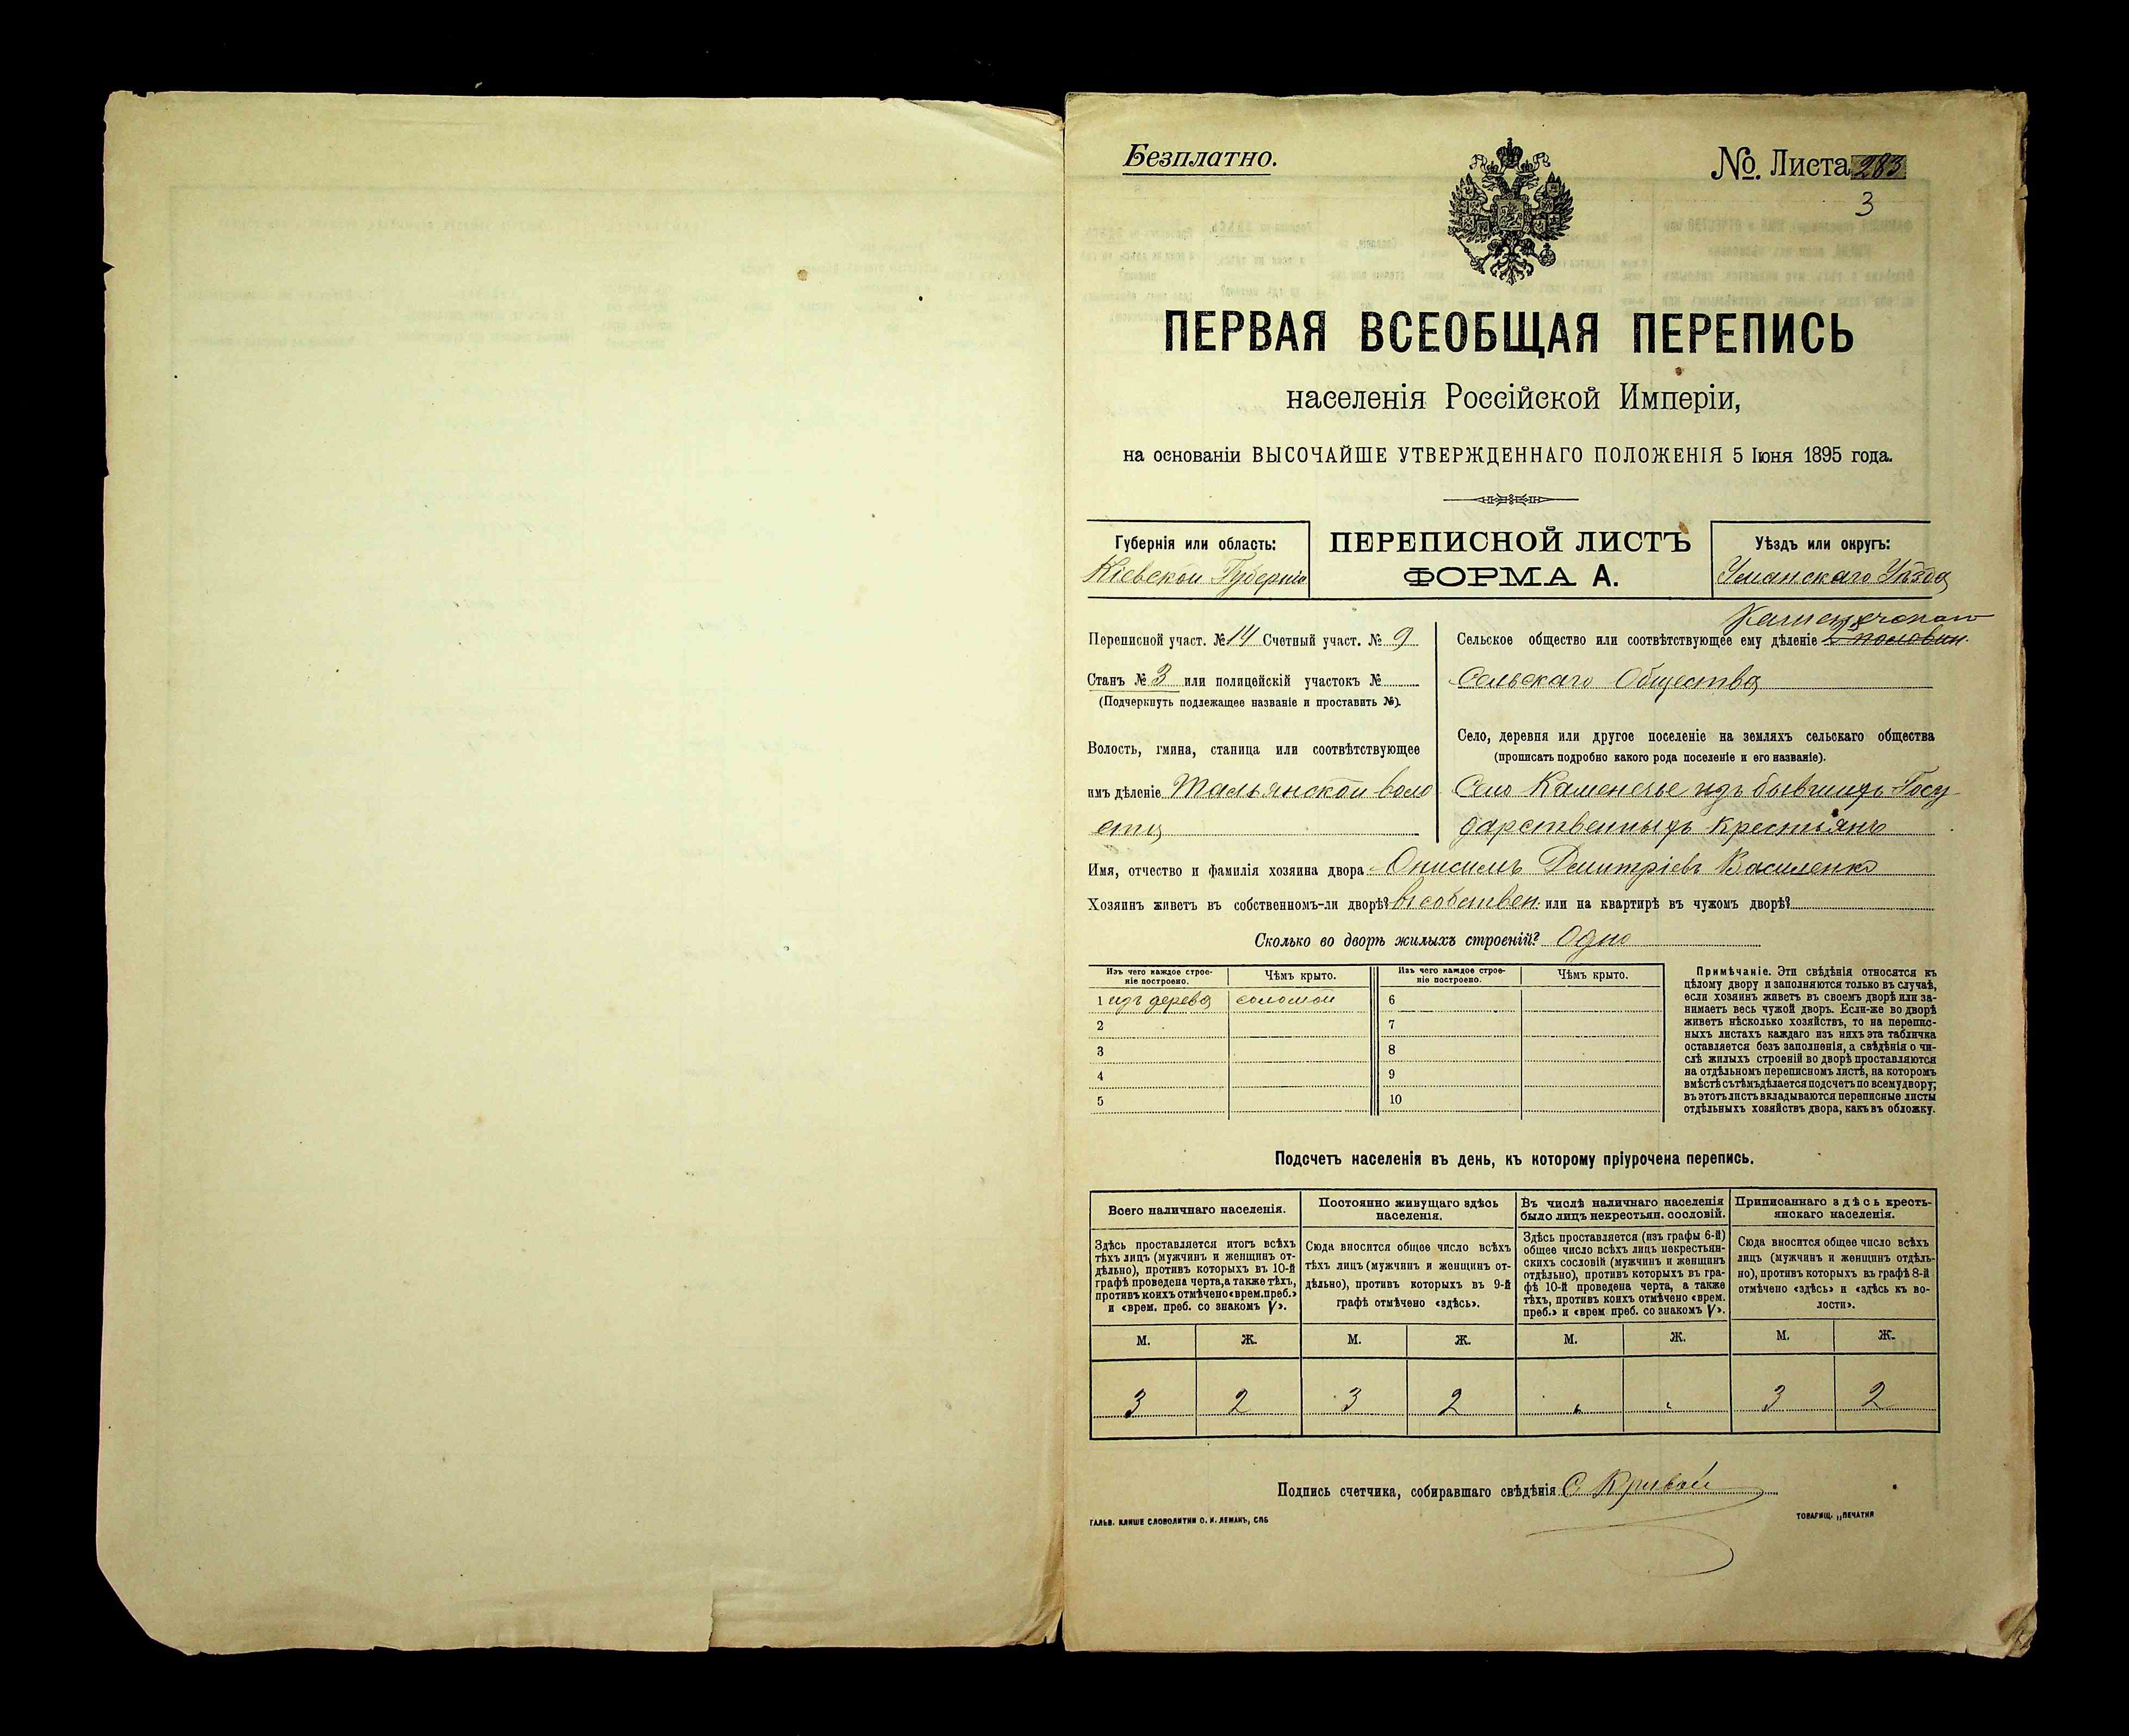 Безплатно.
№. Листа 283
3
ПЕРВАЯ ВСЕОБЩАЯ ПЕРЕПИСЬ
населенія Россійской Имперіи,
на основаніи ВЫСОЧАЙШЕ УТВЕРЖДЕННАГО ПОЛОЖЕНІЯ 5 Іюня 1895 года.
Губернія или область:
Кіевской Губерніи
ПЕРЕПИСНОЙ ЛИСТЪ
ФОРМА А.
Уѣздъ или округъ:
Уманскаго Уѣзда
Переписной участ. № 14 Счетный участ. № 9
Станъ № 3 или полицейскій участокъ №
(Подчеркнуть подлежащее названіе и проставить №).
Волость, гмина, станица или соотвѣтствующее
имъ дѣленіе Тальянской воло
сти
Сельское общество или соотвѣтствующее ему дѣленіе
Сельскаго Общества
Село, деревня или другое поселеніе на земляхъ сельскаго общества
(прописать подробно какого рода поселеніе и его названіе).
Село Каменечье изъ бывшихъ Госу
дарственныхъ крестьянъ
Имя, отчество и фамилія хозяина двора Онисимъ Дмитріевъ Василенко
Хозяинъ живетъ въ собственномъ-ли дворѣ? въ собствен. или на квартирѣ въ чужомъ дворѣ?
Сколько во дворѣ жилыхъ строеній? Одно
Изъ чего каждое строе-
ніе построено.
Чѣмъ крыто.
Изъ чего каждое строе-
ніе построено.
Чѣмъ крыто.
1 изъ дерева соломой 6
2 7
3 8
4 9
5 10
Примѣчаніе. Эти свѣдѣнія относятся къ
цѣлому двору и заполняются только въ случаѣ,
если хозяинъ живетъ въ своемъ дворѣ или за-
нимаетъ весь чужой дворъ. Если-же во дворѣ
живетъ нѣсколько хозяйствъ, то на перепис-
ныхъ листахъ каждаго изъ нихъ эта табличка
оставляется безъ заполненія, а свѣдѣнія о чи-
слѣ жилыхъ строеній во дворѣ проставляются
на отдѣльномъ переписномъ листѣ, на которомъ
вмѣстѣ съ тѣмъ дѣлается подсчетъ по всему двору;
въ этотъ листъ вкладываются переписные листы
отдѣльныхъ хозяйствъ двора, какъ въ обложку.
Подсчетъ населенія въ день, къ которому пріурочена перепись.
Всего наличнаго населенія.
Здѣсь проставляется итогъ всѣхъ
тѣхъ лицъ (мужчинъ и женщинъ от-
дѣльно), противъ которыхъ въ 10-й
графѣ проведена черта, а также тѣхъ,
противъ коихъ отмѣчено «врем. преб.»
и «врем. преб. со знакомъ V».
Постоянно живущаго здѣсь
населенія.
Сюда вносится общее число всѣхъ
тѣхъ лицъ (мужчинъ и женщинъ от-
дѣльно), противъ которыхъ въ 9-й
графѣ отмѣчено «здѣсь».
Въ числѣ наличнаго населенія
было лицъ некрестьян. сословій.
Здѣсь проставляется (изъ графы 6-й)
общее число всѣхъ лицъ некрестьян-
скихъ сословій (мужчинъ и женщинъ
отдѣльно), противъ которыхъ въ гра-
фѣ 10-й проведена черта, а также
тѣхъ, противъ коихъ отмѣчено «врем.
преб.» и «врем преб. со знакомъ V».
Приписаннаго здѣсь кресть-
янскаго населенія.
Сюда вносится общее число всѣхъ
лицъ (мужчинъ и женщинъ отдѣль-
но), противъ которыхъ въ графѣ 8-й
отмѣчено «здѣсь» и «здѣсь къ во-
лости».
М. Ж. М. Ж. М. Ж. М. Ж.
3 2 3 2 " " 3 2
Подпись счетчика, собиравшаго свѣдѣнія С Кривой
ГАЛЬВ. КЛИШЕ СЛОВОЛИТНИ О. И. ЛЕМАНЪ, СПБ
ТОВАРИЩ. „ПЕЧАТНЯ